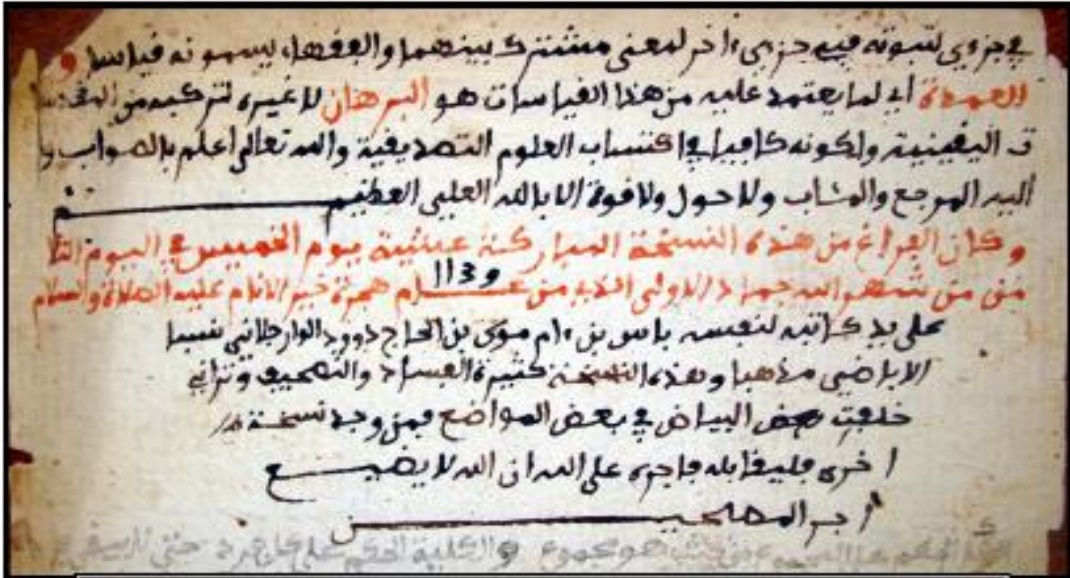 في جزءي لثبوته في جزءي ءاخر لمعنى مشترك بينهما والفقهاء يسمونه قياسا و
العمدة أي لما يعتمد عليه من هذا القياسات هو البرهان لا غيره لتركبه من المقدما
ت اليقينية ولكونه كافيا في اكتساب العلوم التصديقية والله تعالى اعلم بالصواب و
اليه المرجع والمئاب ولا حول ولا قوة الا بالله العلي العظيم تم
وكان الفراغ من هذه النسخة المباركة عشية يوم الخميس في اليوم الثا
من من شهر الله جماد الاولى الذي من عام 1139 هجرة خير الانام عليه الصلاة والسلام
على يد كاتبه لنفسه بن موسى بن الحاج داوود الوارجلاني نسبا
الاباضي مذهبا وهذه النسخة كثيرة الفساد والتصحيف وتراني
خلفت بعض البياض في بعض المواضع فمن وجد نسخة
اخرى فليقابله فاجره على الله ان الله لا يضيع
أجر المصلحين
هو مجموع والكلية الحكم على كل فرد حتى